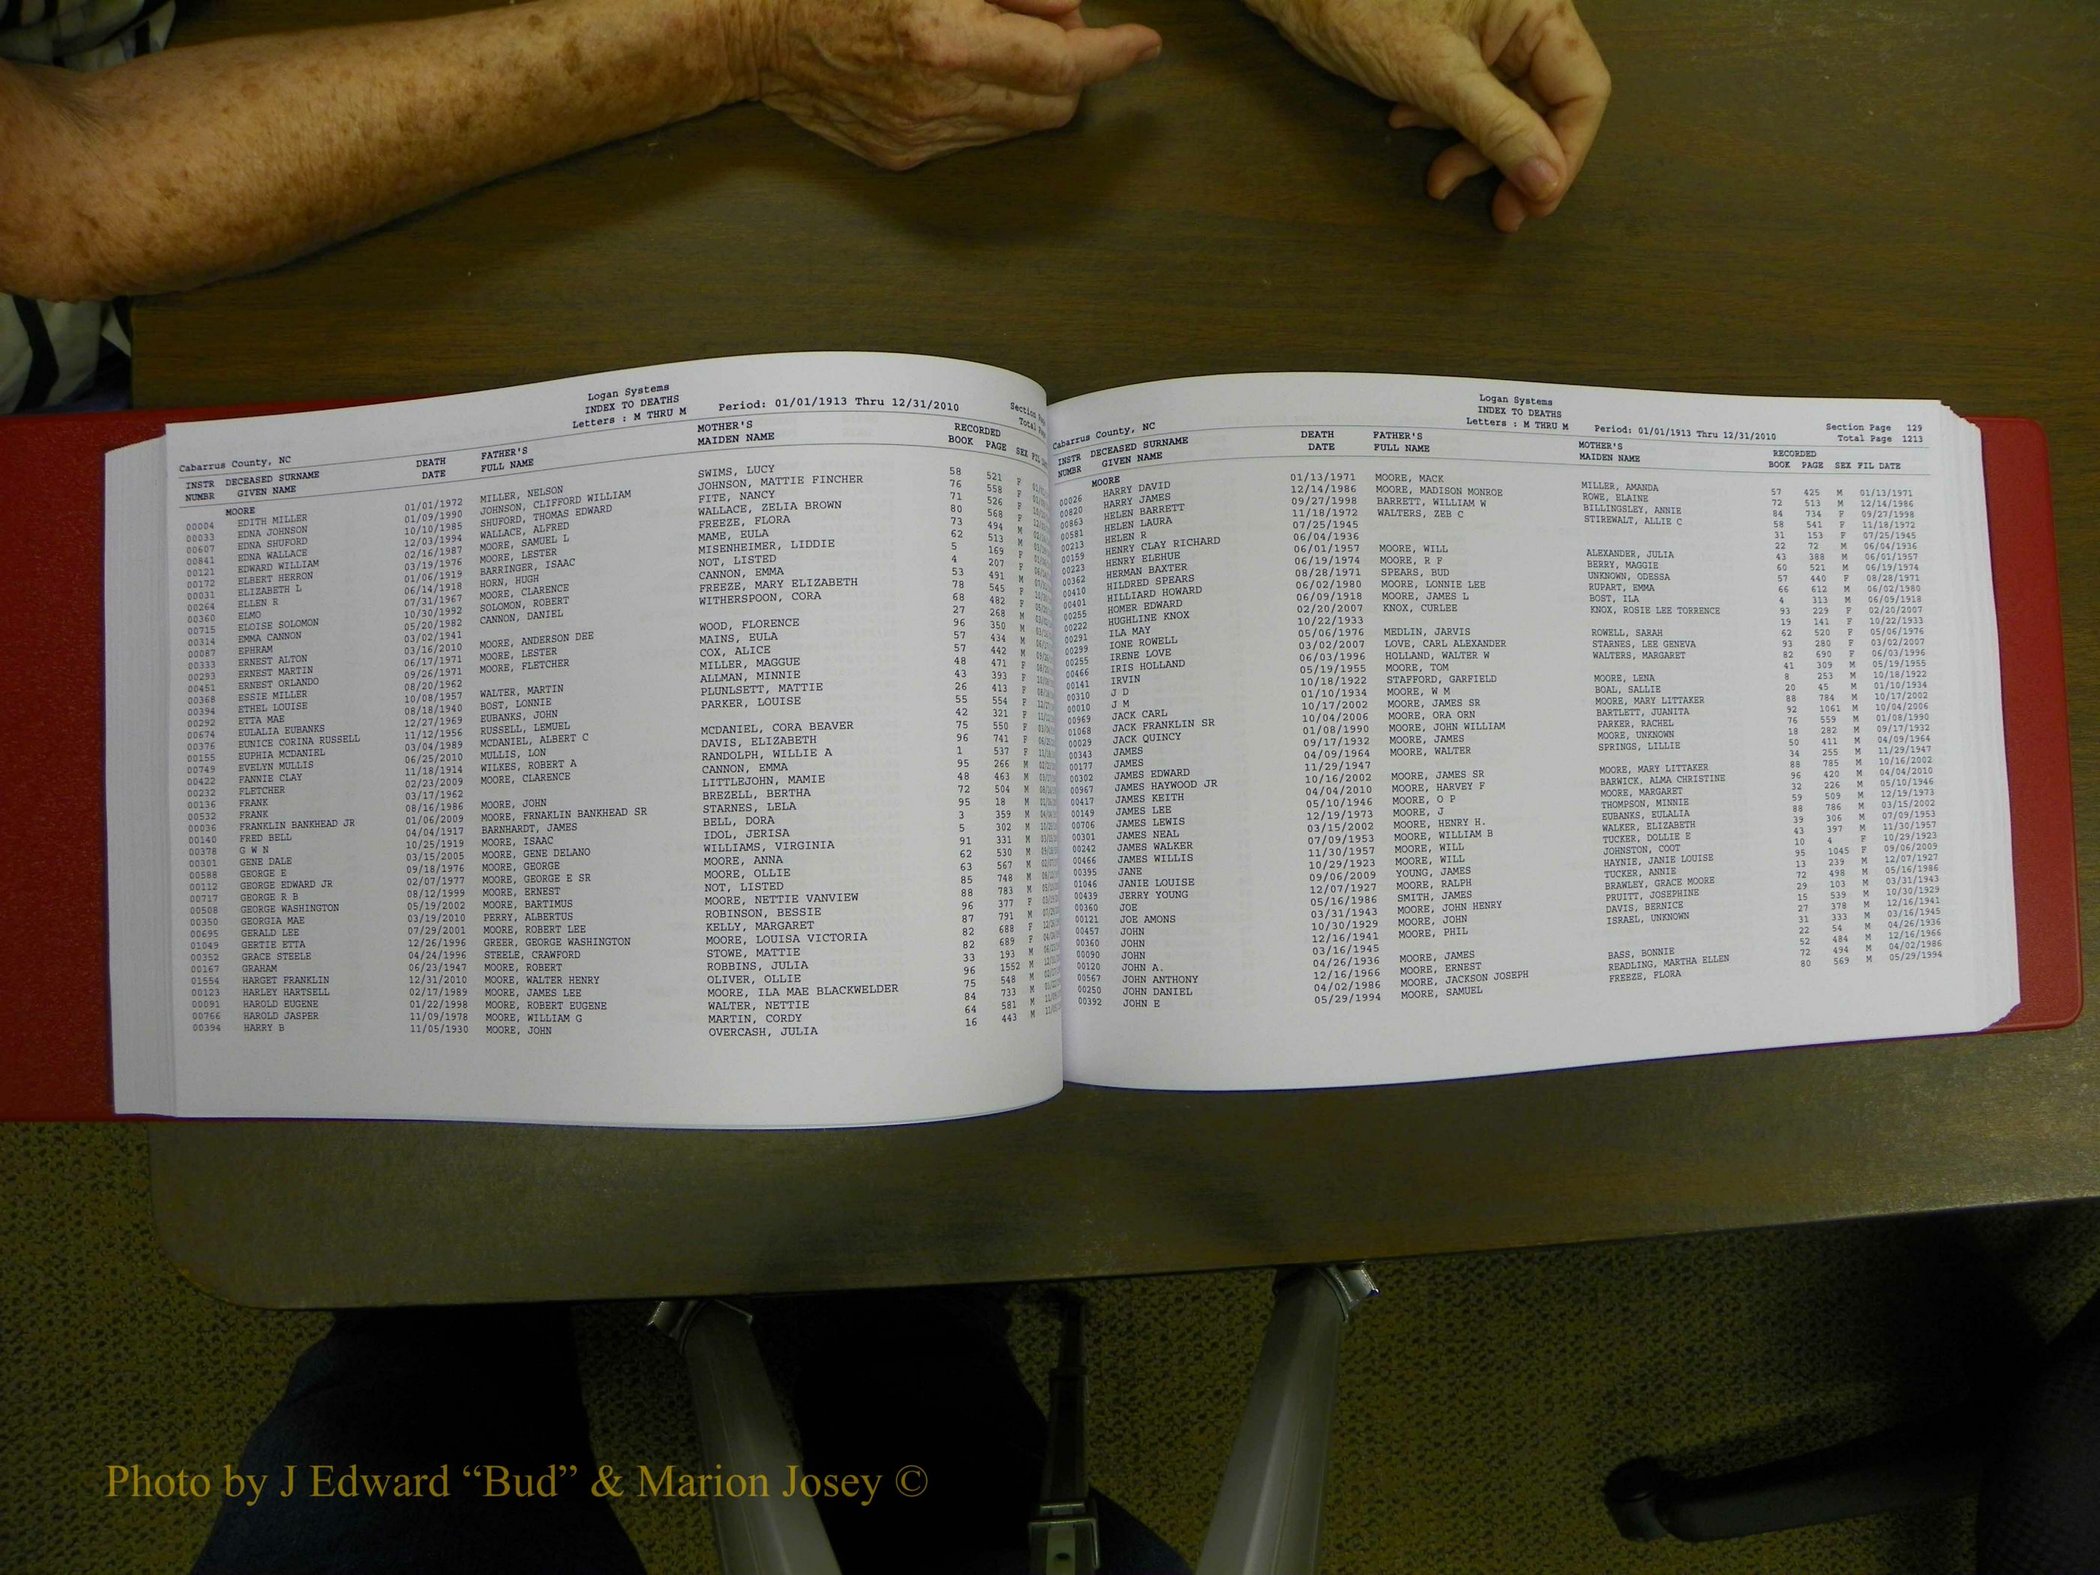 Logan Systems
INDEX TO DEATHS
Letters : M THRU M Period: 01/01/1913 Thru 12/31/2010
Cabarrus County, NC
INSTR DECEASED SURNAME DEATH FATHER'S MOTHER'S RECORDED
NUMBR GIVEN NAME DATE FULL NAME MAIDEN NAME BOOK PAGE SEX
MOORE
00004 EDITH MILLER 01/01/1972 MILLER, NELSON SWIMS, LUCY 58 521 F
00033 EDNA JOHNSON 01/09/1990 JOHNSON, CLIFFORD WILLIAM JOHNSON, MATTIE FINCHER 76 558 F
00607 EDNA SHUFORD 10/10/1985 SHUFORD, THOMAS EDWARD FITE, NANCY 71 526 F
00841 EDNA WALLACE 12/03/1994 WALLACE, ALFRED WALLACE, ZELIA BROWN 80 568 F
00121 EDWARD WILLIAM 02/16/1987 MOORE, SAMUEL L FREEZE, FLORA 73 494 M
00172 ELBERT HERRON 03/19/1976 MOORE, LESTER MAME, EULA 62 513 M
00031 ELIZABETH L 01/06/1919 BARRINGER, ISAAC MISENHEIMER, LIDDIE 5 169 F
00264 ELLEN R 06/14/1918 HORN, HUGH NOT, LISTED 4 207 F
00360 ELMO 07/31/1967 MOORE, CLARENCE CANNON, EMMA 53 491 M
00715 ELOISE SOLOMON 10/30/1992 SOLOMON, ROBERT FREEZE, MARY ELIZABETH 78 545 F
00314 EMMA CANNON 05/20/1982 CANNON, DANIEL WITHERSPOON, CORA 68 482 F
00087 EPHRAM 03/02/1941 27 268 M
00333 ERNEST ALTON 03/16/2010 MOORE, ANDERSON DEE WOOD, FLORENCE 96 350 M
00293 ERNEST MARTIN 06/17/1971 MOORE, LESTER MAINS, EULA 57 434 M
00451 ERNEST ORLANDO 09/26/1971 MOORE, FLETCHER COX, ALICE 57 442 M
00368 ESSIE MILLER 08/20/1962 MILLER, MAGGUE 48 471 F
00394 ETHEL LOUISE 10/08/1957 WALTER, MARTIN ALLMAN, MINNIE 43 393 F
00292 ETTA MAE 08/18/1940 BOST, LONNIE PLUNLSETT, MATTIE 26 413 F
00674 EULALIA EUBANKS 12/27/1969 EUBANKS, JOHN PARKER, LOUISE 55 554 F
00376 EUNICE CORINA RUSSELL 11/12/1956 RUSSELL, LEMUEL 42 321 F
00155 EUPHIA MCDANIEL 03/04/1989 MCDANIEL, ALBERT C MCDANIEL, CORA BEAVER 75 550 F
00749 EVELYN MULLIS 06/25/2010 MULLIS, LON DAVIS, ELIZABETH 96 741 F
00422 FANNIE CLAY 11/18/1914 WILKES, ROBERT A RANDOLPH, WILLIE A 1 537 F
00232 FLETCHER 02/23/2009 MOORE, CLARENCE CANNON, EMMA 95 266 M
00136 FRANK 03/17/1962 LITTLEJOHN, MAMIE 48 463 M
00532 FRANK 08/16/1986 MOORE, JOHN BREZELL, BERTHA 72 504 M
00036 FRANKLIN BANKHEAD JR 01/06/2009 MOORE, FRNAKLIN BANKHEAD SR STARNES, LELA 95 18 M
00140 FRED BELL 04/04/1917 BARNHARDT, JAMES BELL, DORA 3 359 M
00378 G W N 10/25/1919 MOORE, ISAAC IDOL, JERISA 5 302 M
00301 GENE DALE 03/15/2005 MOORE, GENE DELANO WILLIAMS, VIRGINIA 91 331 M
00588 GEORGE E 09/18/1976 MOORE, GEORGE MOORE, ANNA 62 530 M
00112 GEORGE EDWARD JR 02/07/1977 MOORE, GEORGE E SR MOORE, OLLIE 63 567 M
00717 GEORGE R B 08/12/1999 MOORE, ERNEST NOT, LISTED 85 748 M
00508 GEORGE WASHINGTON 05/19/2002 MOORE, BARTIMUS MOORE, NETTIE VANVIEW 88 783 M
00350 GEORGIA MAE 03/19/2010 PERRY, ALBERTUS ROBINSON, BESSIE 96 377 F
00695 GERALD LEE 07/29/2001 MOORE, ROBERT LEE KELLY, MARGARET 87 791 M
01049 GERTIE ETTA 12/26/1996 GREER, GEORGE WASHINGTON MOORE, LOUISA VICTORIA 82 688 F
00352 GRACE STEELE 04/24/1996 STEELE, CRAWFORD STOWE, MATTIE 82 689 F
00167 GRAHAM 06/23/1947 MOORE, ROBERT ROBBINS, JULIA 33 193 M
01554 HARGET FRANKLIN 12/31/2010 MOORE, WALTER HENRY OLIVER, OLLIE 96 1552 M
00123 HARLEY HARTSELL 02/17/1989 MOORE, JAMES LEE MOORE, ILA MAE BLACKWELDER 75 548 M
00091 HAROLD EUGENE 01/22/1998 MOORE, ROBERT EUGENE WALTER, NETTIE 84 733 M
00766 HAROLD JASPER 11/09/1978 MOORE, WILLIAM G MARTIN, CORDY 64 581 M
00394 HARRY B 11/05/1930 MOORE, JOHN OVERCASH, JULIA 16 443 M
Logan Systems
INDEX TO DEATHS
Letters : M THRU M Period: 01/01/1913 Thru 12/31/2010
Section Page 129
Total Page 1213
Cabarrus County, NC
INSTR DECEASED SURNAME DEATH FATHER'S MOTHER'S RECORDED
NUMBR GIVEN NAME DATE FULL NAME MAIDEN NAME BOOK PAGE SEX FIL DATE
MOORE
00026 HARRY DAVID 01/13/1971 MOORE, MACK MILLER, AMANDA 57 425 M 01/13/1971
00820 HARRY JAMES 12/14/1986 MOORE, MADISON MONROE ROWE, ELAINE 72 513 M 12/14/1986
00863 HELEN BARRETT 09/27/1998 BARRETT, WILLIAM W BILLINGSLEY, ANNIE 84 734 F 09/27/1998
00581 HELEN LAURA 11/18/1972 WALTERS, ZEB C STIREWALT, ALLIE C 58 541 F 11/18/1972
00213 HELEN R 07/25/1945 31 153 F 07/25/1945
00159 HENRY CLAY RICHARD 06/04/1936 22 72 M 06/04/1936
00223 HENRY ELEHUE 06/01/1957 MOORE, WILL ALEXANDER, JULIA 43 388 M 06/01/1957
00362 HERMAN BAXTER 06/19/1974 MOORE, R F BERRY, MAGGIE 60 521 M 06/19/1974
00410 HILDRED SPEARS 08/28/1971 SPEARS, BUD UNKNOWN, ODESSA 57 440 F 08/28/1971
00401 HILLIARD HOWARD 06/02/1980 MOORE, LONNIE LEE RUPART, EMMA 66 612 M 06/02/1980
00255 HOMER EDWARD 06/09/1918 MOORE, JAMES L BOST, ILA 4 313 M 06/09/1918
00222 HUGHLINE KNOX 02/20/2007 KNOX, CURLEE KNOX, ROSIE LEE TORRENCE 93 229 F 02/20/2007
00291 ILA MAY 10/22/1933 19 141 F 10/22/1933
00299 IONE ROWELL 05/06/1976 MEDLIN, JARVIS ROWELL, SARAH 62 520 F 05/06/1976
00255 IRENE LOVE 03/02/2007 LOVE, CARL ALEXANDER STARNES, LEE GENEVA 93 280 F 03/02/2007
00466 IRIS HOLLAND 06/03/1996 HOLLAND, WALTER W WALTERS, MARGARET 82 690 F 06/03/1996
00141 IRVIN 05/19/1955 MOORE, TOM 41 309 M 05/19/1955
00310 J D 10/18/1922 STAFFORD, GARFIELD MOORE, LENA 8 253 M 10/18/1922
00010 J M 01/10/1934 MOORE, W M BOAL, SALLIE 20 45 M 01/10/1934
00969 JACK CARL 10/17/2002 MOORE, JAMES SR MOORE, MARY LITTAKER 88 784 M 10/17/2002
01068 JACK FRANKLIN SR 10/04/2006 MOORE, ORA ORN BARTLETT, JUANITA 92 1061 M 10/04/2006
00029 JACK QUINCY 01/08/1990 MOORE, JOHN WILLIAM PARKER, RACHEL 76 559 M 01/08/1990
00343 JAMES 09/17/1932 MOORE, JAMES MOORE, UNKNOWN 18 282 M 09/17/1932
00177 JAMES 04/09/1964 MOORE, WALTER SPRINGS, LILLIE 50 411 M 04/09/1964
00302 JAMES EDWARD 11/29/1947 34 255 M 11/29/1947
00967 JAMES HAYWOOD JR 10/16/2002 MOORE, JAMES SR MOORE, MARY LITTAKER 88 785 M 10/16/2002
00417 JAMES KEITH 04/04/2010 MOORE, HARVEY F BARWICK, ALMA CHRISTINE 96 420 M 04/04/2010
00149 JAMES LEE 05/10/1946 MOORE, O P MOORE, MARGARET 32 226 M 05/10/1946
00706 JAMES LEWIS 12/19/1973 MOORE, J THOMPSON, MINNIE 59 509 M 12/19/1973
00301 JAMES NEAL 03/15/2002 MOORE, HENRY H. EUBANKS, EULALIA 88 786 M 03/15/2002
00242 JAMES WALKER 07/09/1953 MOORE, WILLIAM B WALKER, ELIZABETH 39 306 M 07/09/1953
00466 JAMES WILLIS 11/30/1957 MOORE, WILL TUCKER, DOLLIE E 43 397 M 11/30/1957
00395 JANE 10/29/1923 MOORE, WILL JOHNSTON, COOT 10 4 F 10/29/1923
01046 JANIE LOUISE 09/06/2009 YOUNG, JAMES HAYNIE, JANIE LOUISE 95 1045 F 09/06/2009
00439 JERRY YOUNG 12/07/1927 MOORE, RALPH TUCKER, ANNIE 13 239 M 12/07/1927
00360 JOE 05/16/1986 SMITH, JAMES BRAWLEY, GRACE MOORE 72 498 M 05/16/1986
00121 JOE AMONS 03/31/1943 MOORE, JOHN HENRY PRUITT, JOSEPHINE 29 103 M 03/31/1943
00457 JOHN 10/30/1929 MOORE, JOHN DAVIS, BERNICE 15 539 M 10/30/1929
00360 JOHN 12/16/1941 MOORE, PHIL ISRAEL, UNKNOWN 27 378 M 12/16/1941
00090 JOHN 03/16/1945 31 333 M 03/16/1945
00120 JOHN A. 04/26/1936 MOORE, JAMES 22 54 M 04/26/1936
00567 JOHN ANTHONY 12/16/1966 MOORE, ERNEST BASS, BONNIE 52 484 M 12/16/1966
00250 JOHN DANIEL 04/02/1986 MOORE, JACKSON JOSEPH READLING, MARTHA ELLEN 72 494 M 04/02/1986
00392 JOHN E 05/29/1994 MOORE, SAMUEL FREEZE, FLORA 80 569 M 05/29/1994
Photo by J Edward “Bud” & Marion Josey ©